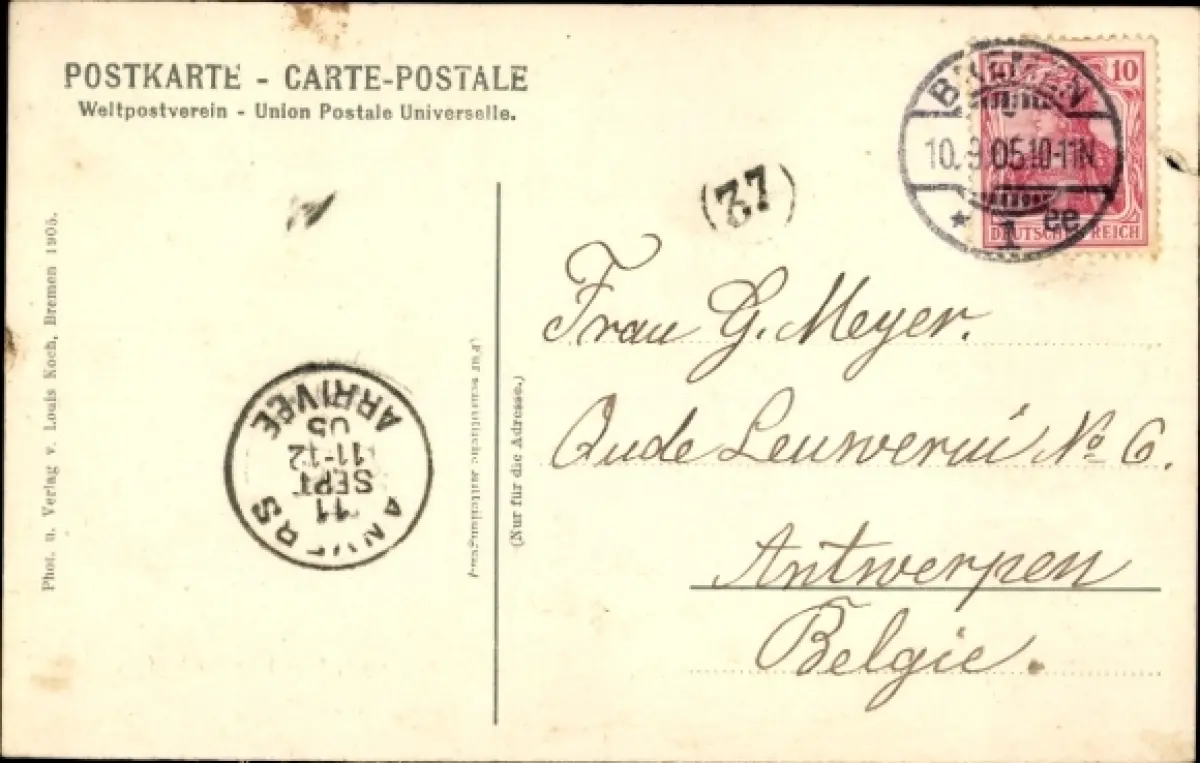 POSTKARTE - CARTE-POSTALE
Weltpostverein - Union Postale Universelle.
BREMEN
10. 9 05. 10-11N
* 1 ee
10 10
DEUTSCHES REICH
(37)
Frau G. Meyer.
Oude Leuwerui No 6.
Antwerpen
Belgie.
ANVERS
11
SEPT
11-12
05
ARRIVEE
(Nur für die Adresse.)
Phot. u. Verlag v. Louis Koch, Bremen 1905.